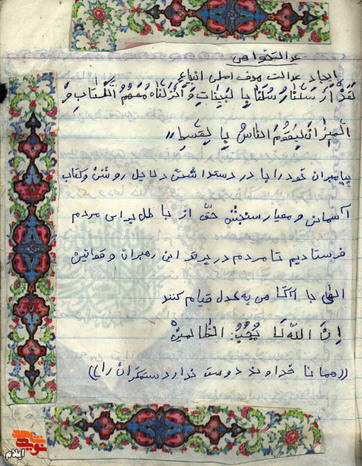 عدالتخواهی
ایجاد عدالت هدف اصلی انبیاء
لَقَدْ اَرْسَلْنا رُسُلَنا بِا لبَیِّناتِ وَ اَنْزَلْناهُ مَعَهُمُ الْکِتابِ وَ
الْمیزانَ لِیَقُومَ النّاسُ بِا لقِسطِ
پیامبران خود را با در دست داشتن دلایل روشن و کتاب
آسمانی و معیار سنجش حق از باطل برای مردم
فرستادیم تا مردم در پرتو این رهبران و قوانین
الهی با آگاهی به عدل قیام کنند
اِنَّ اللهَ لا یُحِبُّ الظّالمینَ
((همانا خداوند دوست ندارد ستمگران را))
ایلام